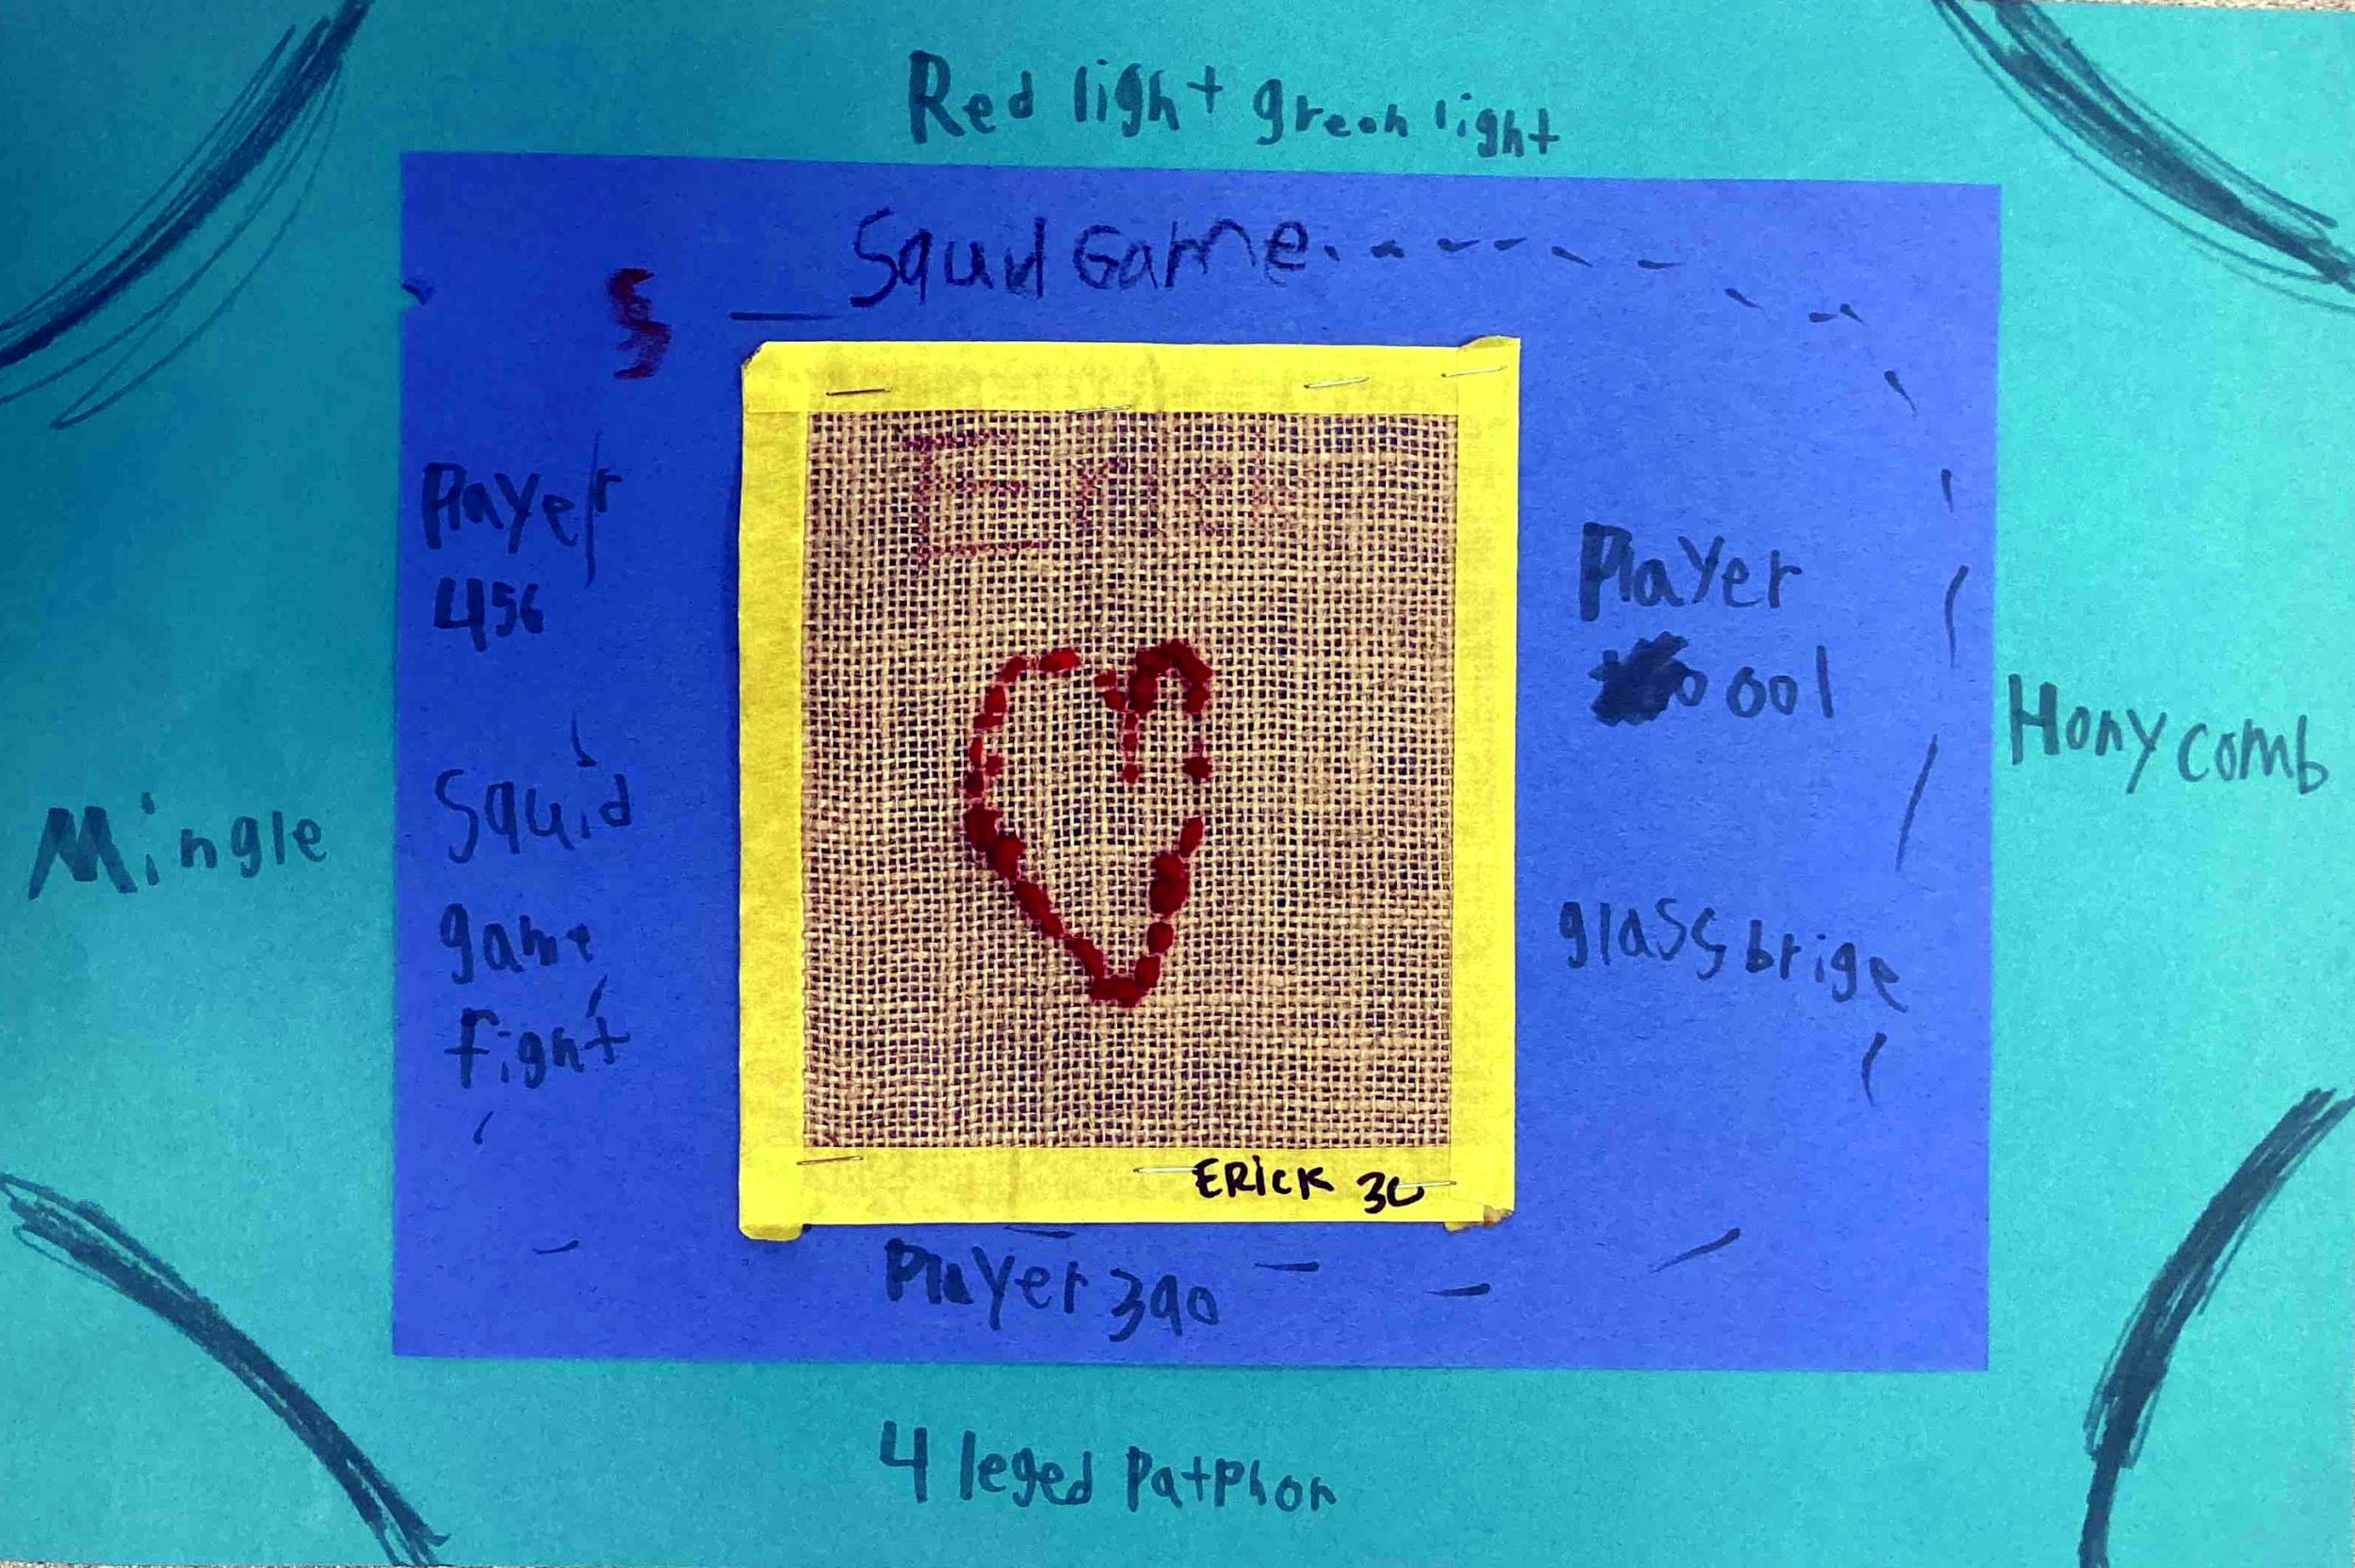 Red light green light
Squid Game
Player
456
Erick
Player
001
Hony comb
Mingle
Squid
game
fight
glass brige
ERICK 3C
Player 390
4 leged Patphon